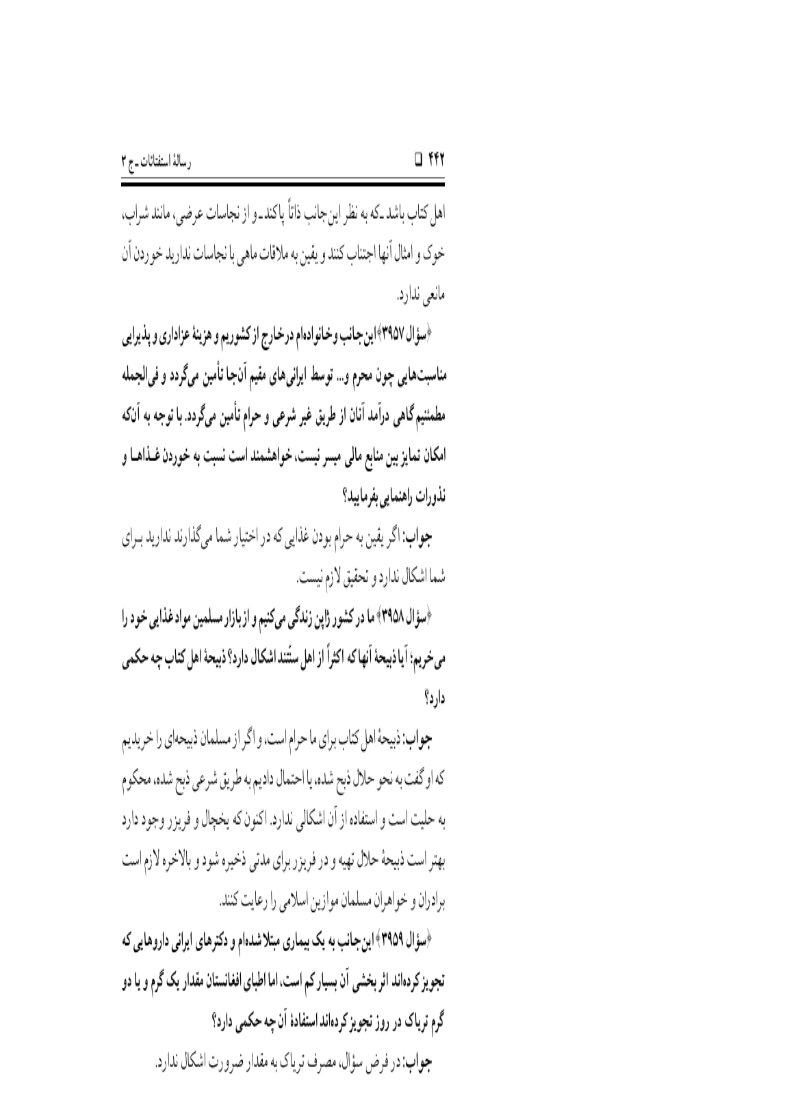 ۴۴۲ ❑ رسالهٔ استفتائات ـ ج ۳
اهل کتاب باشد ـ که به نظر این‌جانب ذاتاً پاکند ـ و از نجاسات عرضی، مانند شراب،
خوک و امثال آنها اجتناب کنند و یقین به ملاقات ماهی با نجاسات ندارید خوردن آن
مانعی ندارد.
﴿سؤال ۳۹۵۷﴾ این‌جانب و خانواده‌ام در خارج از کشوریم و هزینهٔ عزاداری و پذیرایی
مناسبت‌هایی چون محرم و... توسط ایرانی‌های مقیم آن‌جا تأمین می‌گردد و فی‌الجمله
مطمئنیم گاهی درآمد آنان از طریق غیر شرعی و حرام تأمین می‌گردد. با توجه به آن‌که
امکان تمایز بین منابع مالی میسر نیست، خواهشمند است نسبت به خوردن غـذاهـا و
نذورات راهنمایی بفرمایید؟
جواب: اگر یقین به حرام بودن غذایی که در اختیار شما می‌گذارند ندارید بـرای
شما اشکال ندارد و تحقیق لازم نیست.
﴿سؤال ۳۹۵۸﴾ ما در کشور ژاپن زندگی می‌کنیم و از بازار مسلمین مواد غذایی خود را
می‌خریم؛ آیا ذبیحهٔ آنها که اکثراً از اهل سنّتند اشکال دارد؟ ذبیحهٔ اهل کتاب چه حکمی
دارد؟
جواب: ذبیحهٔ اهل کتاب برای ما حرام است، و اگر از مسلمان ذبیحه‌ای را خریدیم
که او گفت به نحو حلال ذبح شده، یا احتمال دادیم به طریق شرعی ذبح شده، محکوم
به حلیت است و استفاده از آن اشکالی ندارد. اکنون که یخچال و فریزر وجود دارد
بهتر است ذبیحهٔ حلال تهیه و در فریزر برای مدتی ذخیره شود و بالاخره لازم است
برادران و خواهران مسلمان موازین اسلامی را رعایت کنند.
﴿سؤال ۳۹۵۹﴾ این‌جانب به یک بیماری مبتلا شده‌ام و دکترهای ایرانی داروهایی که
تجویز کرده‌اند اثر بخشی آن بسیار کم است، اما اطبای افغانستان مقدار یک گرم و یا دو
گرم تریاک در روز تجویز کرده‌اند استفادهٔ آن چه حکمی دارد؟
جواب: در فرض سؤال، مصرف تریاک به مقدار ضرورت اشکال ندارد.